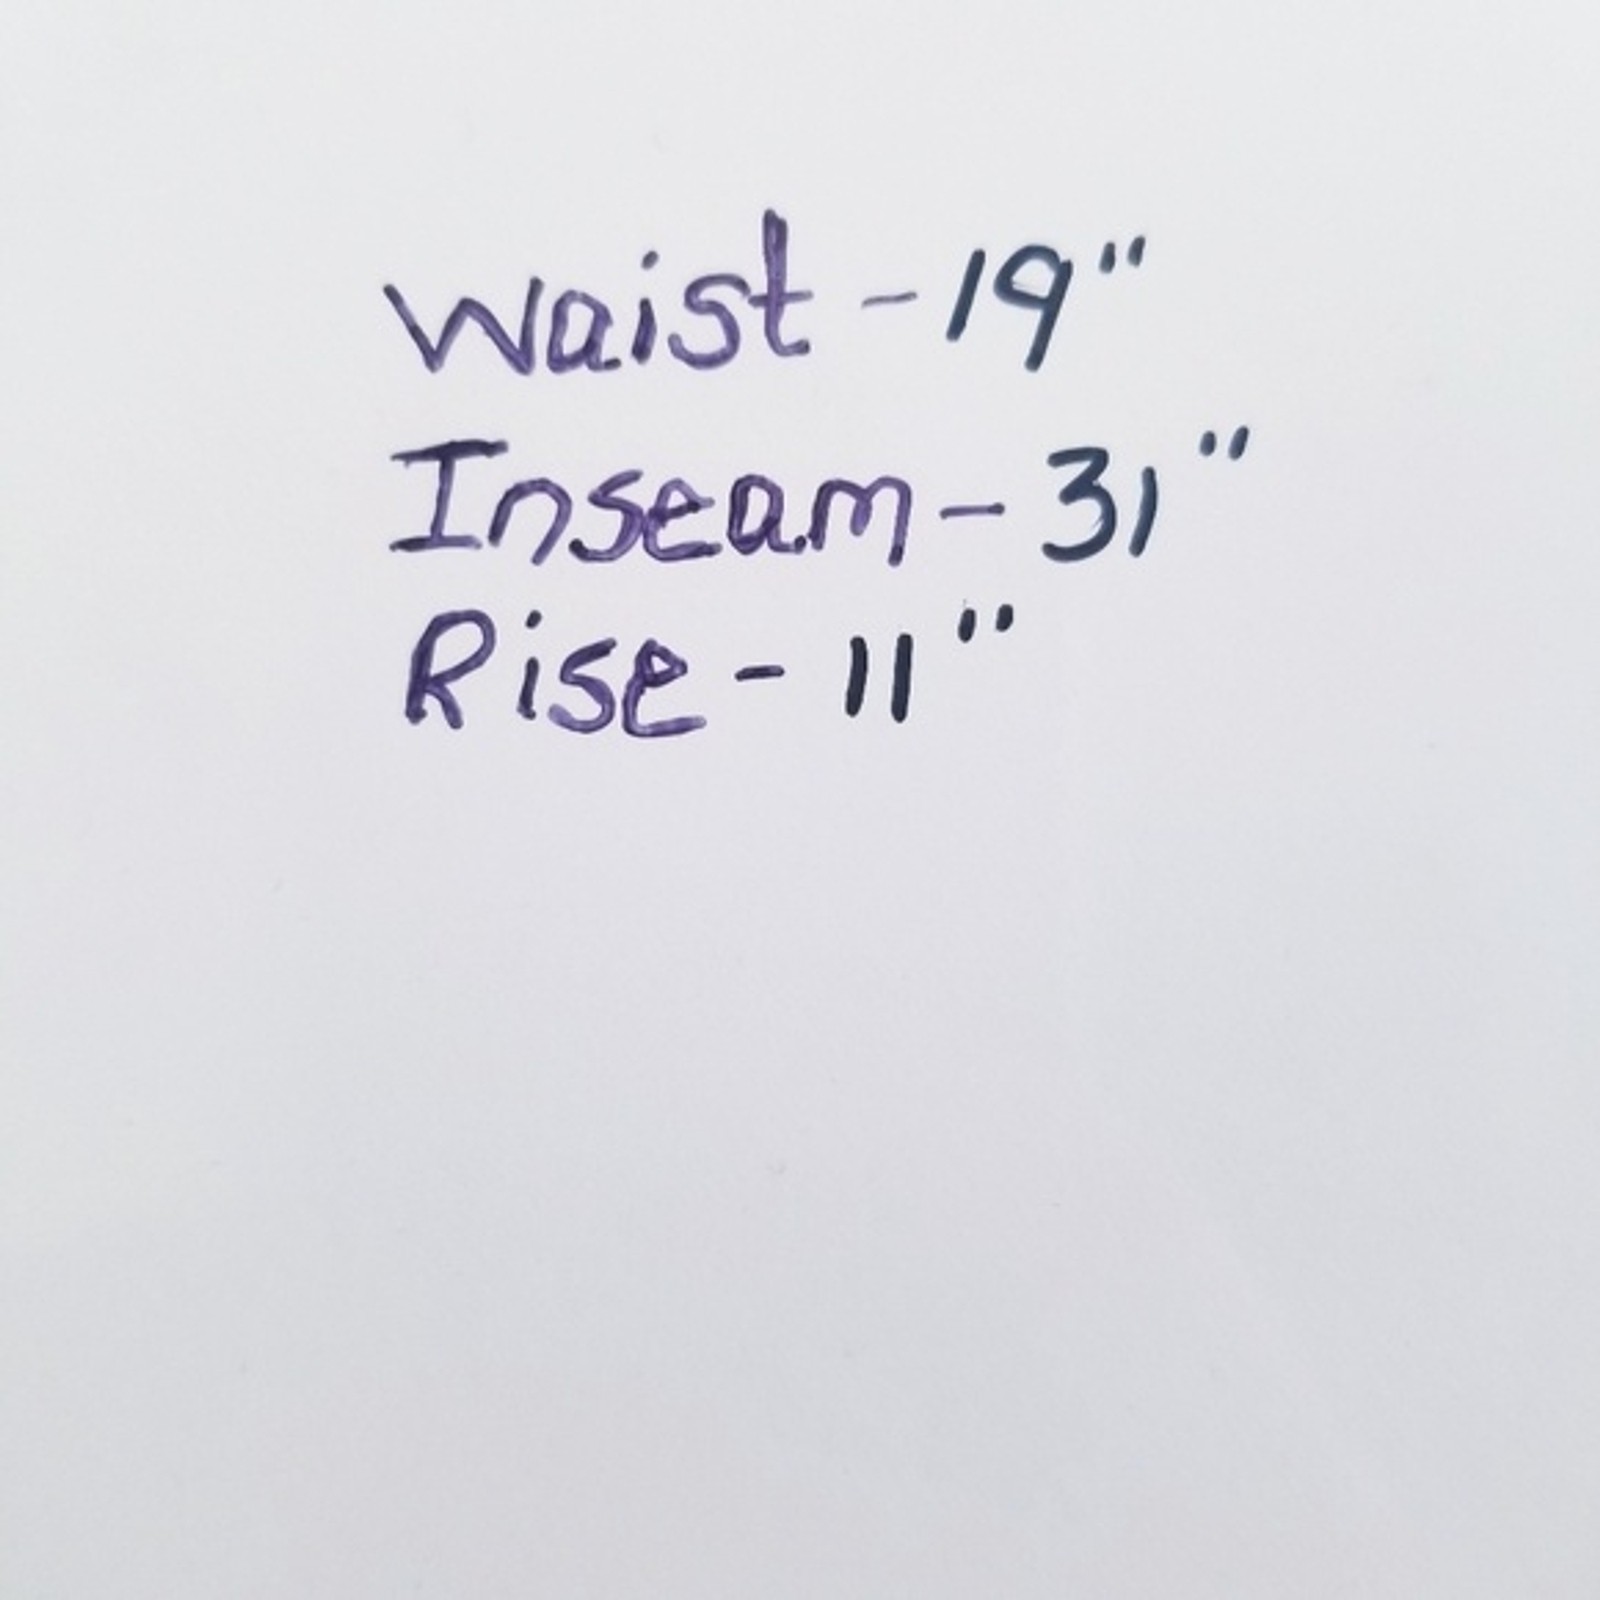 Waist - 19"
Inseam - 31"
Rise - 11"